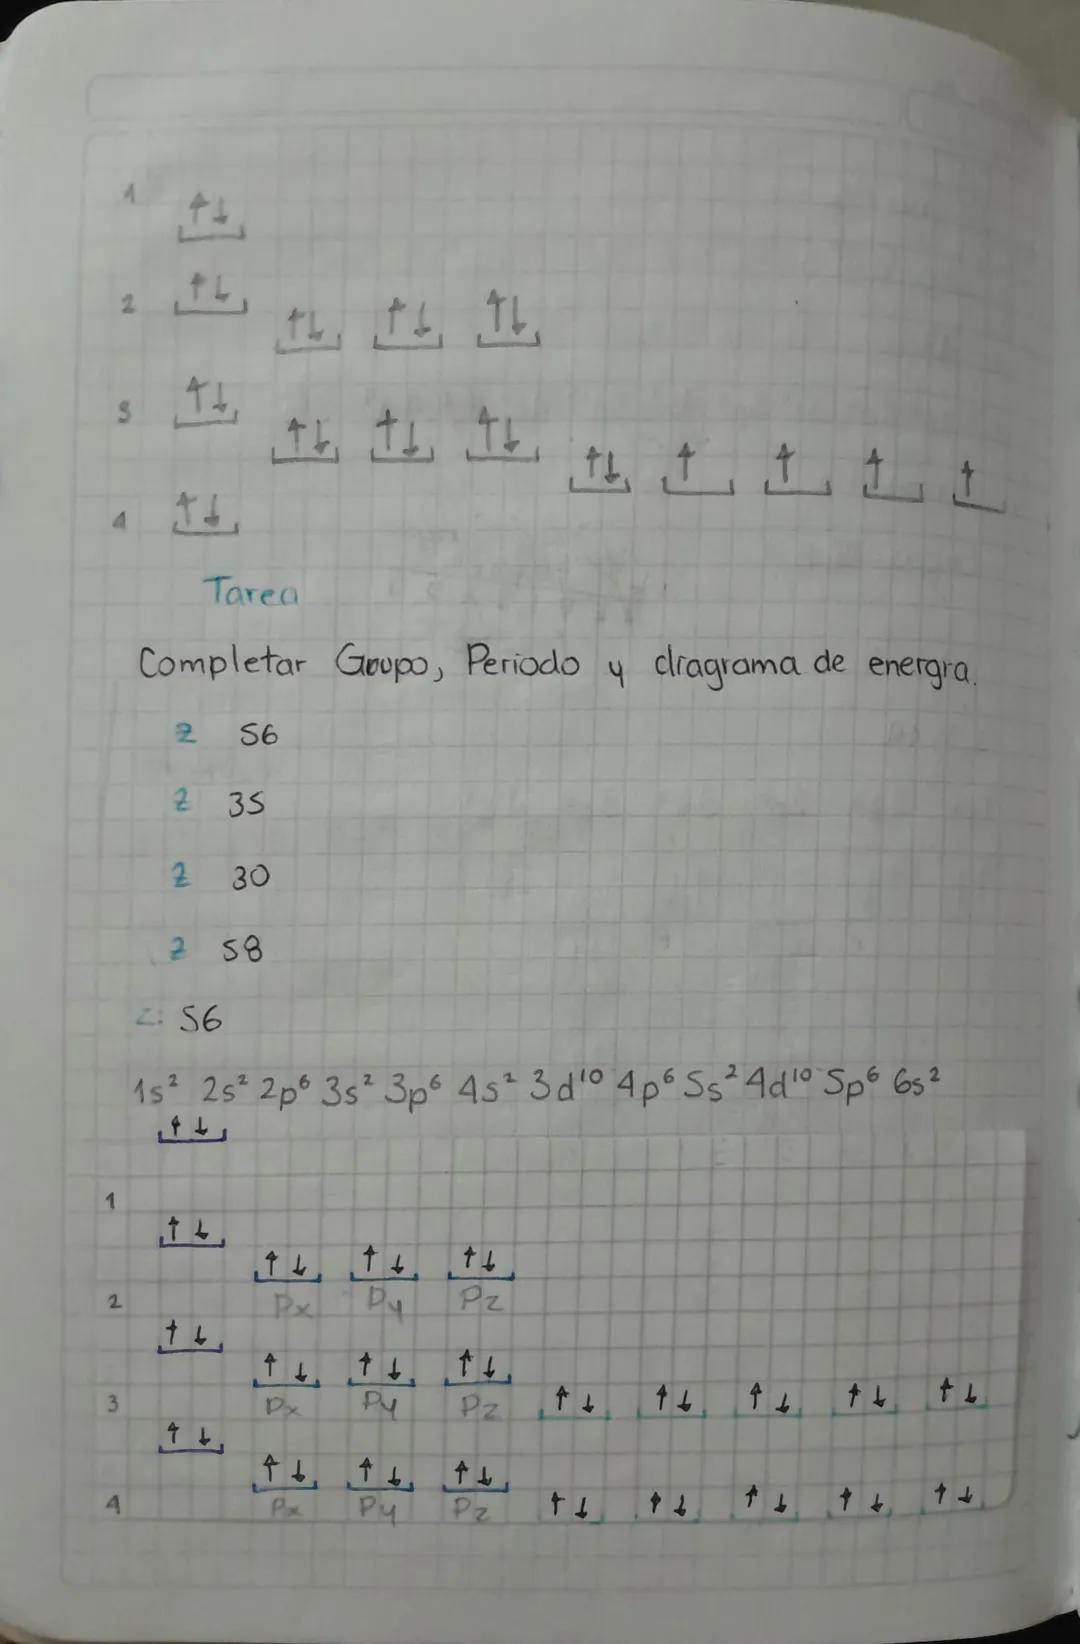 1 ↑↓
2 ↑↓ ↑↓ ↑↓ ↑↓
3 ↑↓ ↑↓ ↑↓ ↑↓ ↑↓ ↑ ↑ ↑ ↑
4 ↑↓
Tarea
Completar Grupo, Periodo y diagrama de energia.
z 56
z 35
z 30
z 58
z: 56
1s² 2s² 2p⁶ 3s² 3p⁶ 4s² 3d¹⁰ 4p⁶ 5s² 4d¹⁰ 5p⁶ 6s²
↑↓
1
↑↓ ↑↓ ↑↓ ↑↓
2 Px Py Pz
↑↓ ↑↓ ↑↓ ↑↓
3 Px Py Pz ↑↓ ↑↓ ↑↓ ↑↓ ↑↓
↑↓ ↑↓ ↑↓ ↑↓
4 Px Py Pz ↑↓ ↑↓ ↑↓ ↑↓ ↑↓